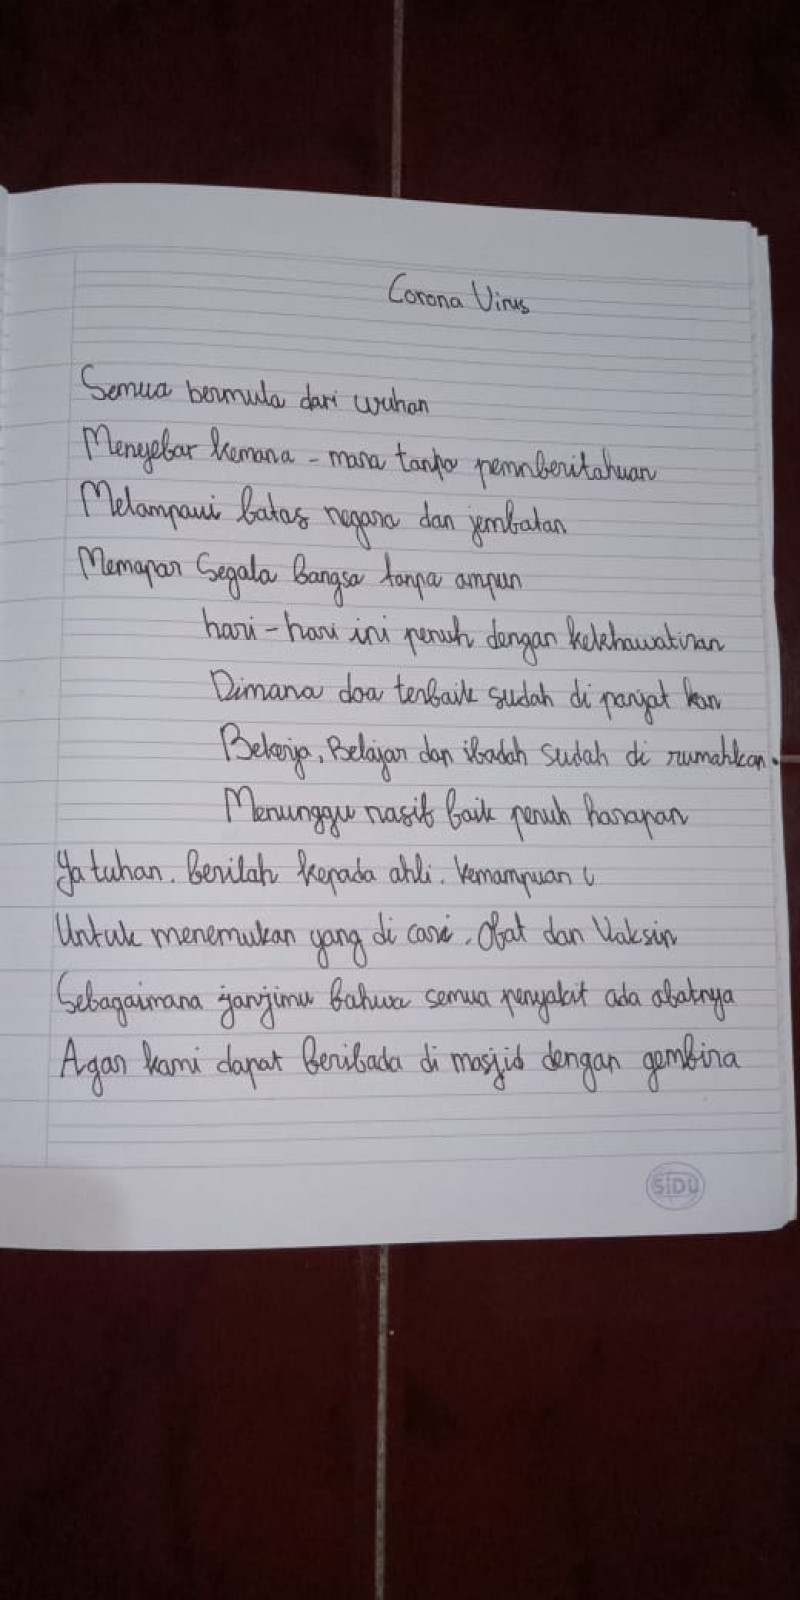 Corona Virus
Semua bermula dari wuhan
Menyebar kemana - mana tanpa pemnberitahuan
Melampaui batas negara dan jembatan
Memapar Segala Bangsa tanpa ampun
hari - hari ini penuh dengan kekhawatiran
Dimana doa terbaik sudah di panjat kan
Bekerja, Belajar dan ibadah sudah di rumahkan.
Menunggu nasib baik penuh harapan
Ya tuhan. Berilah kepada ahli. kemampuan
Untuk menemukan yang di cari. Obat dan Vaksin
Sebagaimana janjimu bahwa semua penyakit ada obatnya
Agar kami dapat beribada di masjid dengan gembira
SiDU